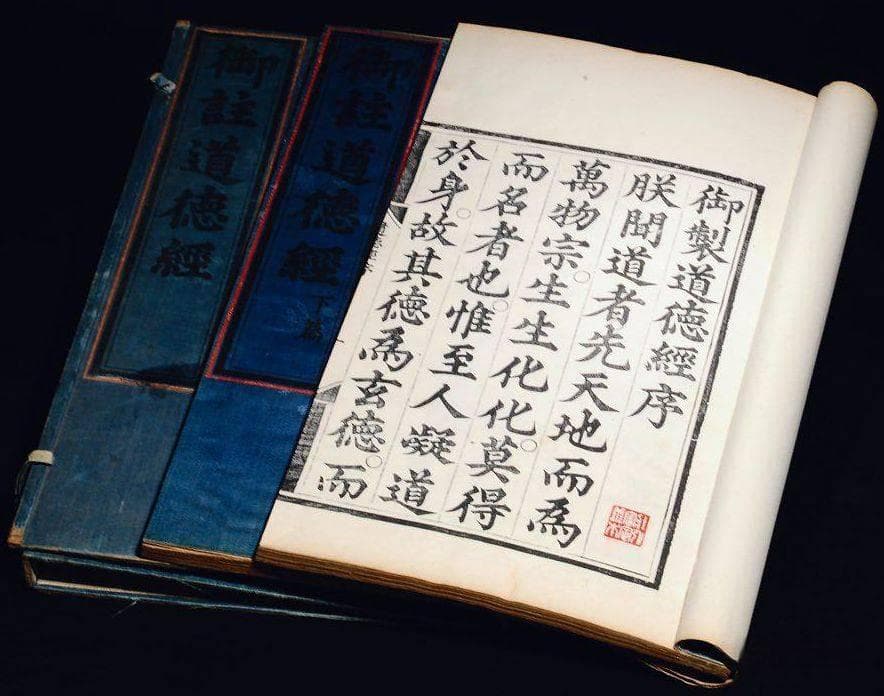 御製道德經序
朕聞道者先天地而為
萬物宗。生生化化。莫得
而名者也。惟至人凝道
於身。故其德為玄德。而
御註道德經
下篇
御註道德經